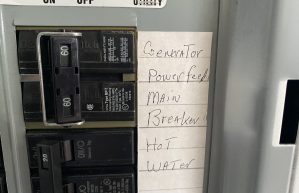 ON OFF
60
60
GENERATOR
POWERFEED
MAIN
BREAKER
HOT
WATER